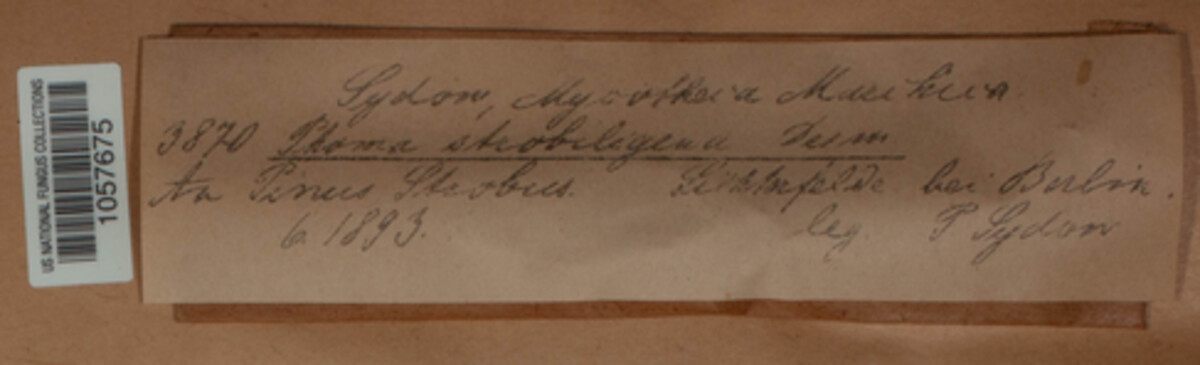 US NATIONAL FUNGUS COLLECTIONS
1057675
Sydow, Mycotheca Marchica
3870 Phoma strobiligena Desm
An Pinus Strobus. Lichterfelde bei Berlin.
6. 1893. leg. P Sydow